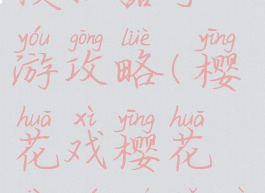 yóu gōng lüè yīng
游攻略(樱
huā xì yīng huā
花戏樱花